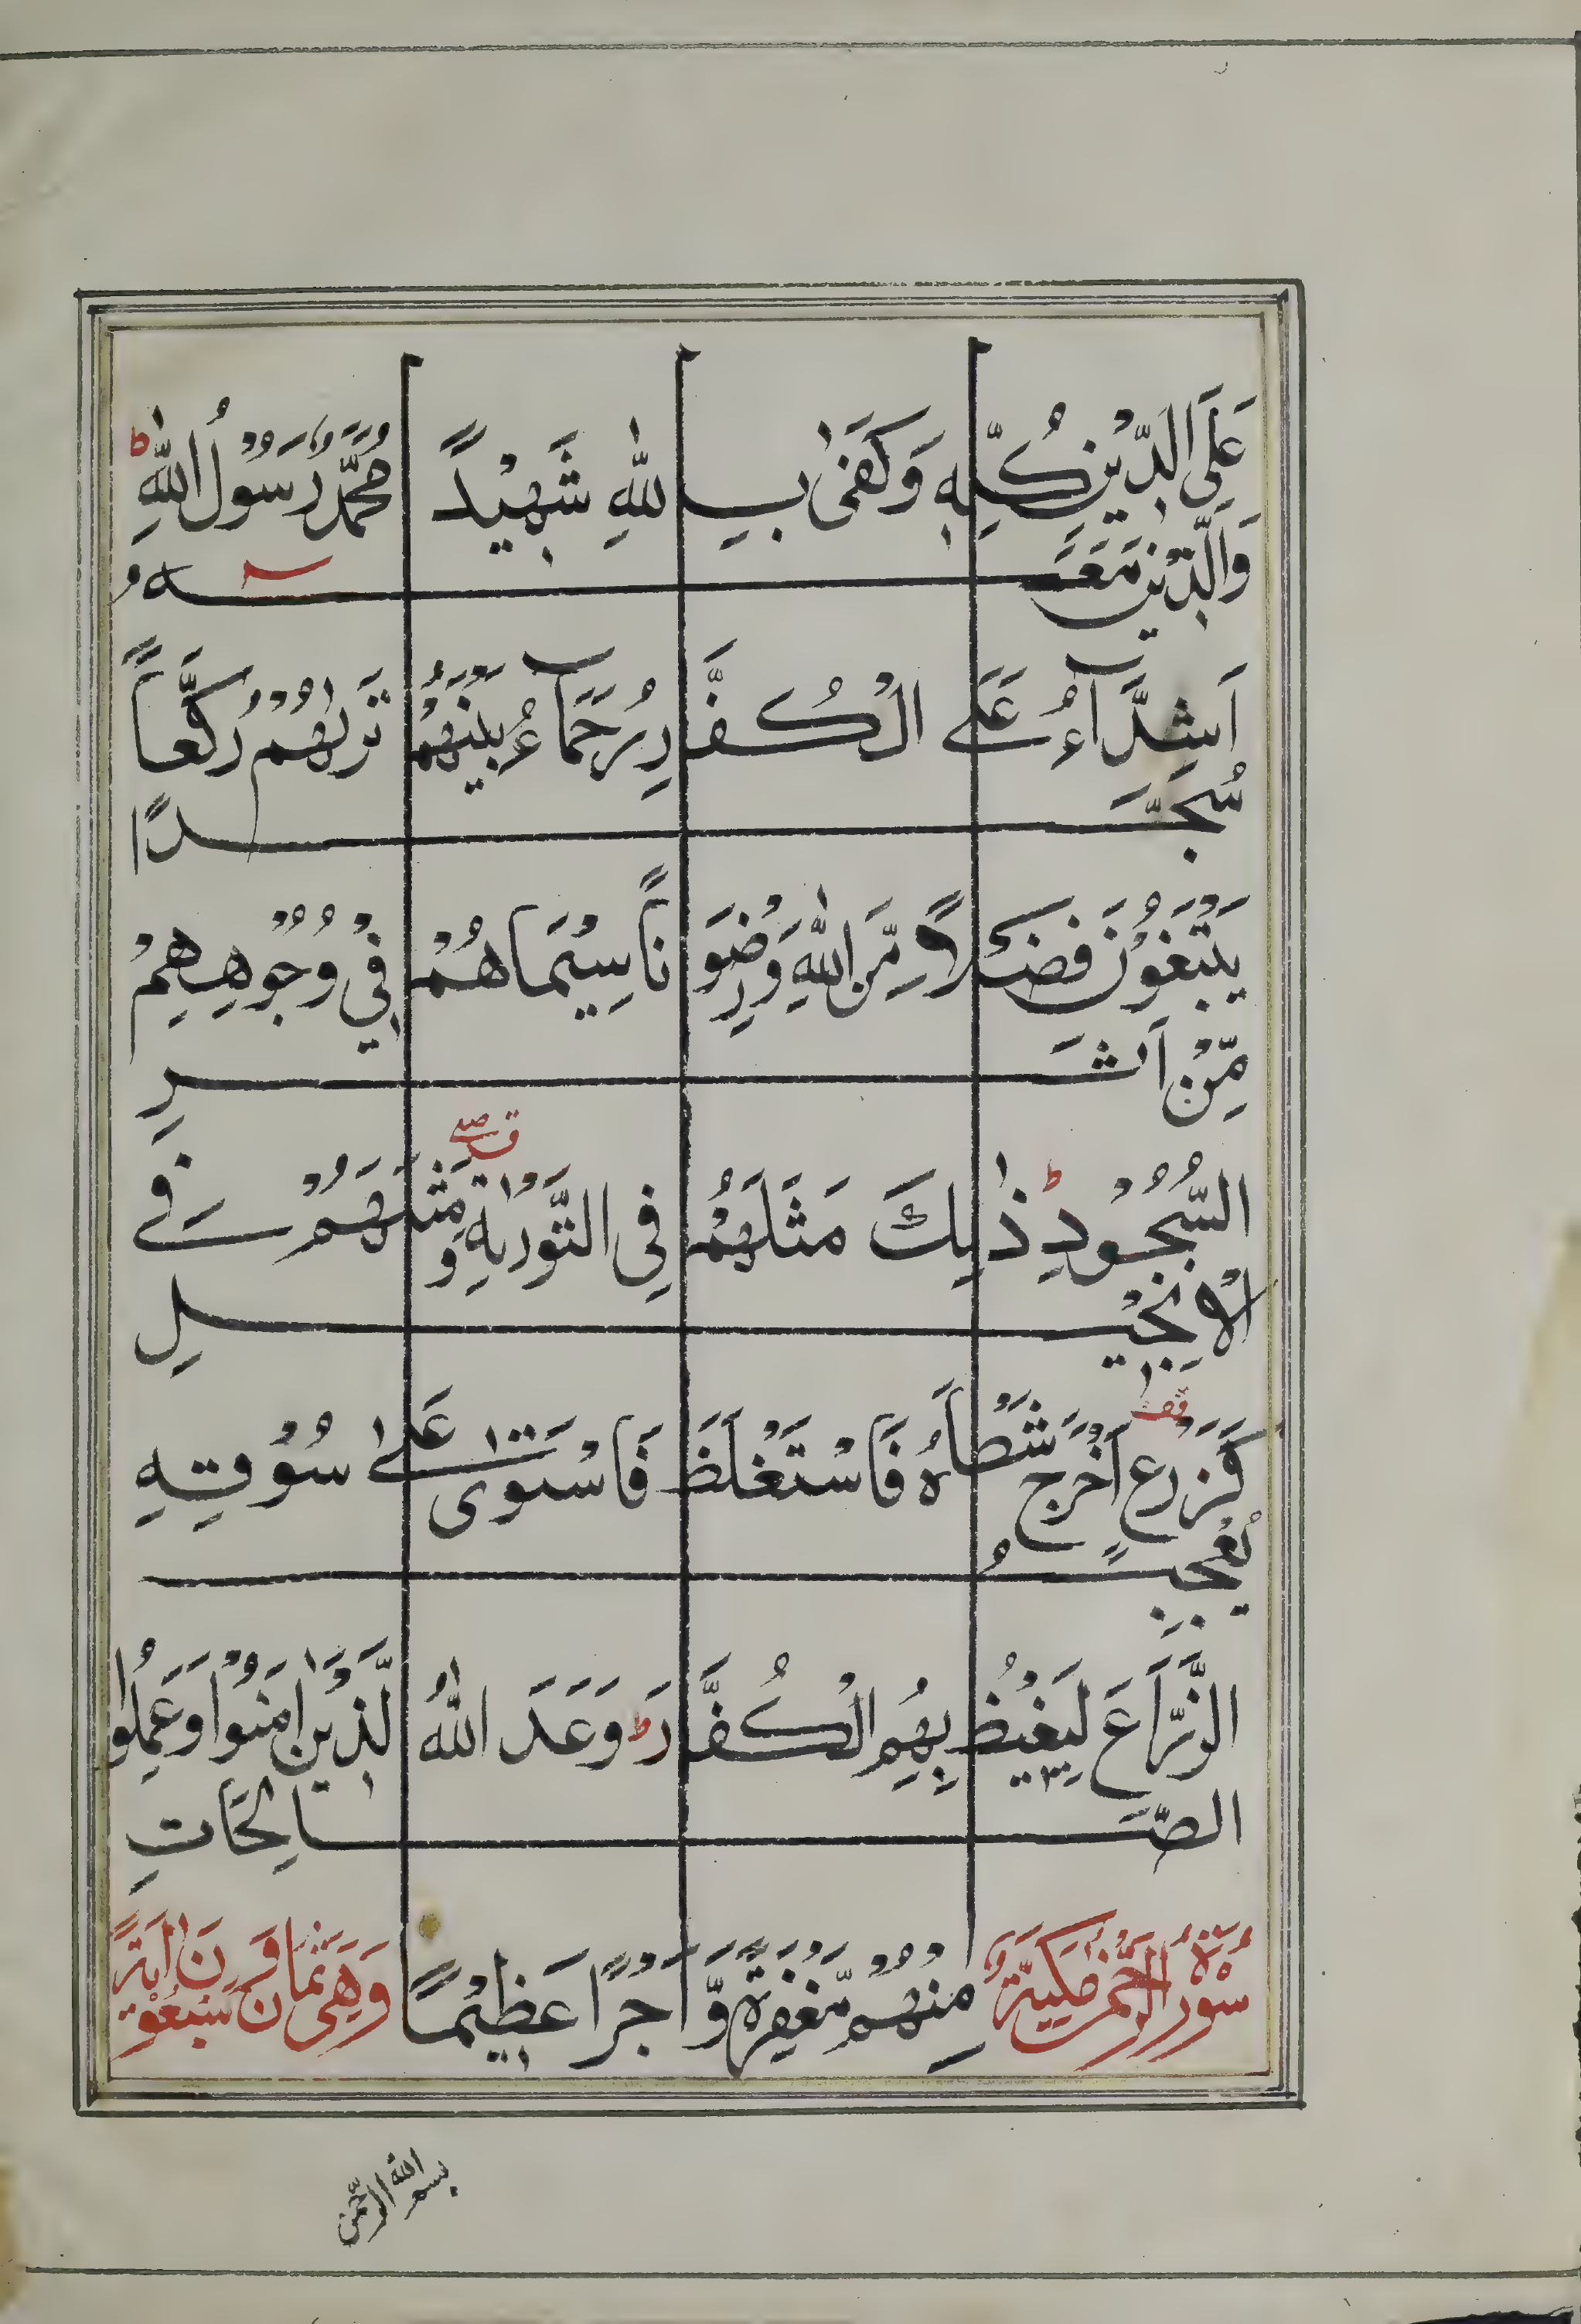 عَلَى الدِّيْنِ كُلِّهٖ وَكَفٰى بِاللّٰهِ شَهِيْدً مُحَمَّدٌ رَّسُوْلُ اللّٰهِ ط
وَالَّذِيْنَ مَعَهٗ
اَشِدَّآءُ عَلَے الْكُفَّارِ رُحَمَآءُ بَيْنَهُمْ تَرٰىهُمْ رُكَّعاً
سُجَّدًا
يَبْتَغُوْنَ فَضْلًا مِّنَ اللّٰهِ وَرِضْوَاناً سِيْمَاهُمْ فِيْ وُجُوْهِهِمْ
مِّنْ اَثَرِ
السُّجُوْدِ ط ذٰلِكَ مَثَلُهُمْ فِى التَّوْرٰىةِ وَمَثَلُهُمْ فِے
الْاِنْجِيْلِ
كَزَرْعٍ اَخْرَجَ شَطْاَهٗ فَاسْتَغْلَظَ فَاسْتَوٰى عَلٰے سُوْقِهٖ
يُعْجِبُ
الزُّرَّاعَ لِيَغِيْظَ بِهِمُ الْكُفَّارَ ط وَعَدَ اللّٰهُ الَّذِيْنَ اٰمَنُوْا وَعَمِلُوا
الصَّالِحَاتِ
سُوْرَةُ الرَّحْمٰنِ مَكِّيَّةٌ مِنْهُمْ مَّغْفِرَةً وَّاَجْرًا عَظِيْمًا وَهِىَ ثَمَانٌ وَّسَبْعُوْنَ اٰيَةً
بسم الله الرحمن